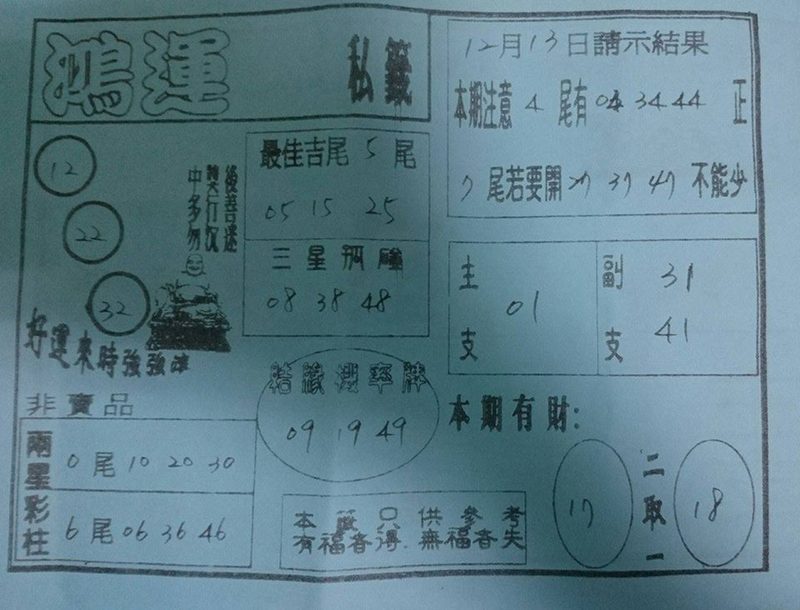 鴻運
私籤
12月13日請示結果
本期注意 4 尾有 04 34 44 正
7 尾若要開 27 37 47 不能少
12
22
32
中獎後
多行善
勿沉迷
好運來時強強滾
最佳吉尾 5 尾
05 15 25
三星
08 38 48
主支
01
副支
31
41
結緣機率牌
09 19 49
本期有財:
17
二取一
18
非賣品
兩星彩柱
0 尾 10 20 30
6 尾 06 36 46
本籤只供參考
有福者得.無福者失